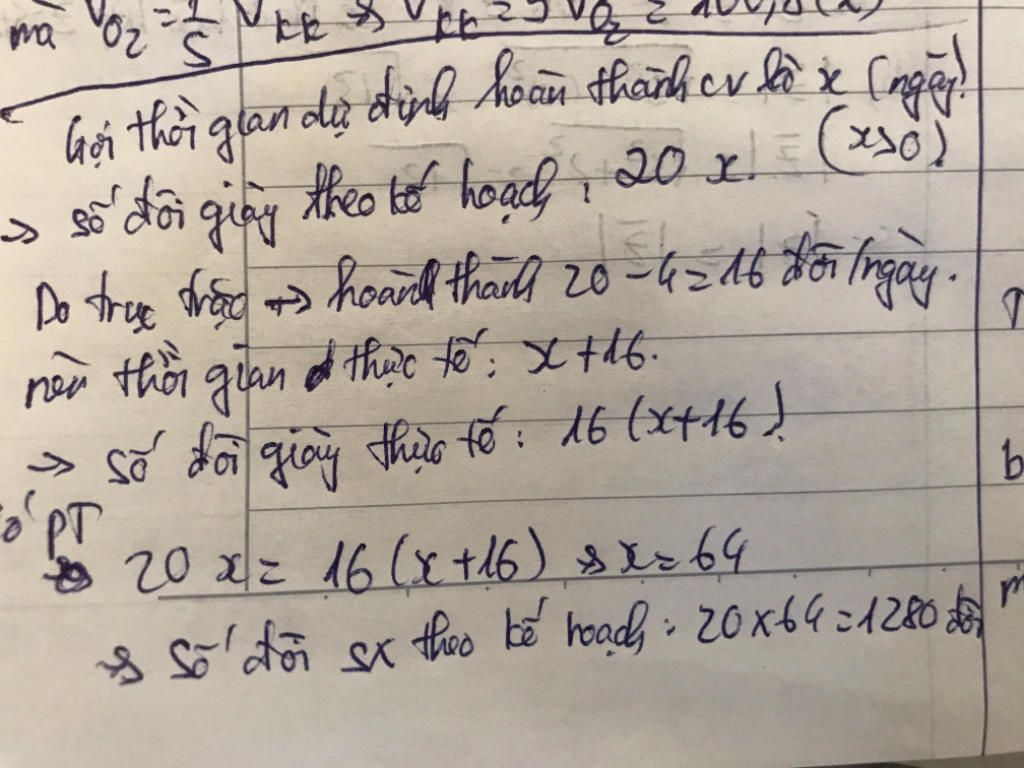 mà V_O2 = 1/5 V_KK → V_KK = 5 V_O2 =
Gọi thời gian dự định hoàn thành cv là x (ngày)
(x>0)
→ số đôi giày theo kế hoạch : 20 x.
Do trục trặc → hoành thành 20 - 4 = 16 đôi/ngày.
nên thời gian thực tế : x + 16.
→ số đôi giày thực tế : 16 (x+16)
PT
20 x = 16 (x+16) → x = 64
→ số đôi sx theo kế hoạch : 20 x 64 = 1280 đôi
b
m